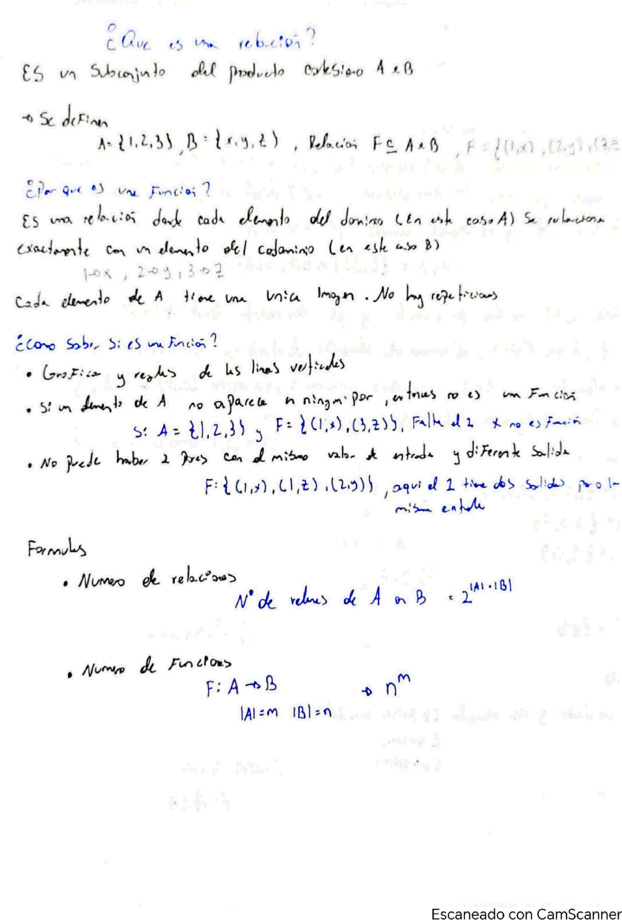 ¿Que es una relación?
ES un Subconjunto del producto cartesiano A x B
→ Se definen
A={1,2,3}, B={x,y,z}, Relación F⊆AxB, F={(1,x),(2,y),(3,z
¿Por que es una Función?
ES una relación donde cada elemento del dominio (en este caso A) Se relaciona
exactamente con un elemento del codominio (en este caso B)
1→x, 2→y, 3→z
Cada elemento de A tiene una unica Imagen. No hay repeticiones
¿Como Saber Si es una Función?
• Grafica y reglas de las lineas verticales
• Si un elemento de A no aparece en ningun par, entonces no es una Función
Si A={1,2,3} y F={(1,x),(3,z)}, Falta el 2 x no es Función
• No puede haber 2 pares con el mismo valor de entrada y diferente Salida
F:{(1,x),(1,z),(2,y)}, aqui el 1 tiene dos salidas para la
misma entrada
Formulas
• Numero de relaciones
N° de relaciones de A en B = 2^|A|·|B|
• Numero de Funciones
F: A→B → n^m
|A|=m |B|=n
Escaneado con CamScanner